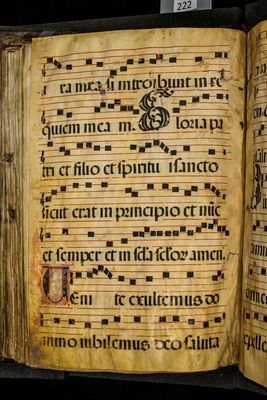 222
ira mea si introibunt in re
quiem mea m. Gloria pa
tri et filio et spiritu i sancto
sicut erat in principio et nūc
et semper et in scla sclor amen.
Veni te exultemus do
mino iubilemus deo saluta